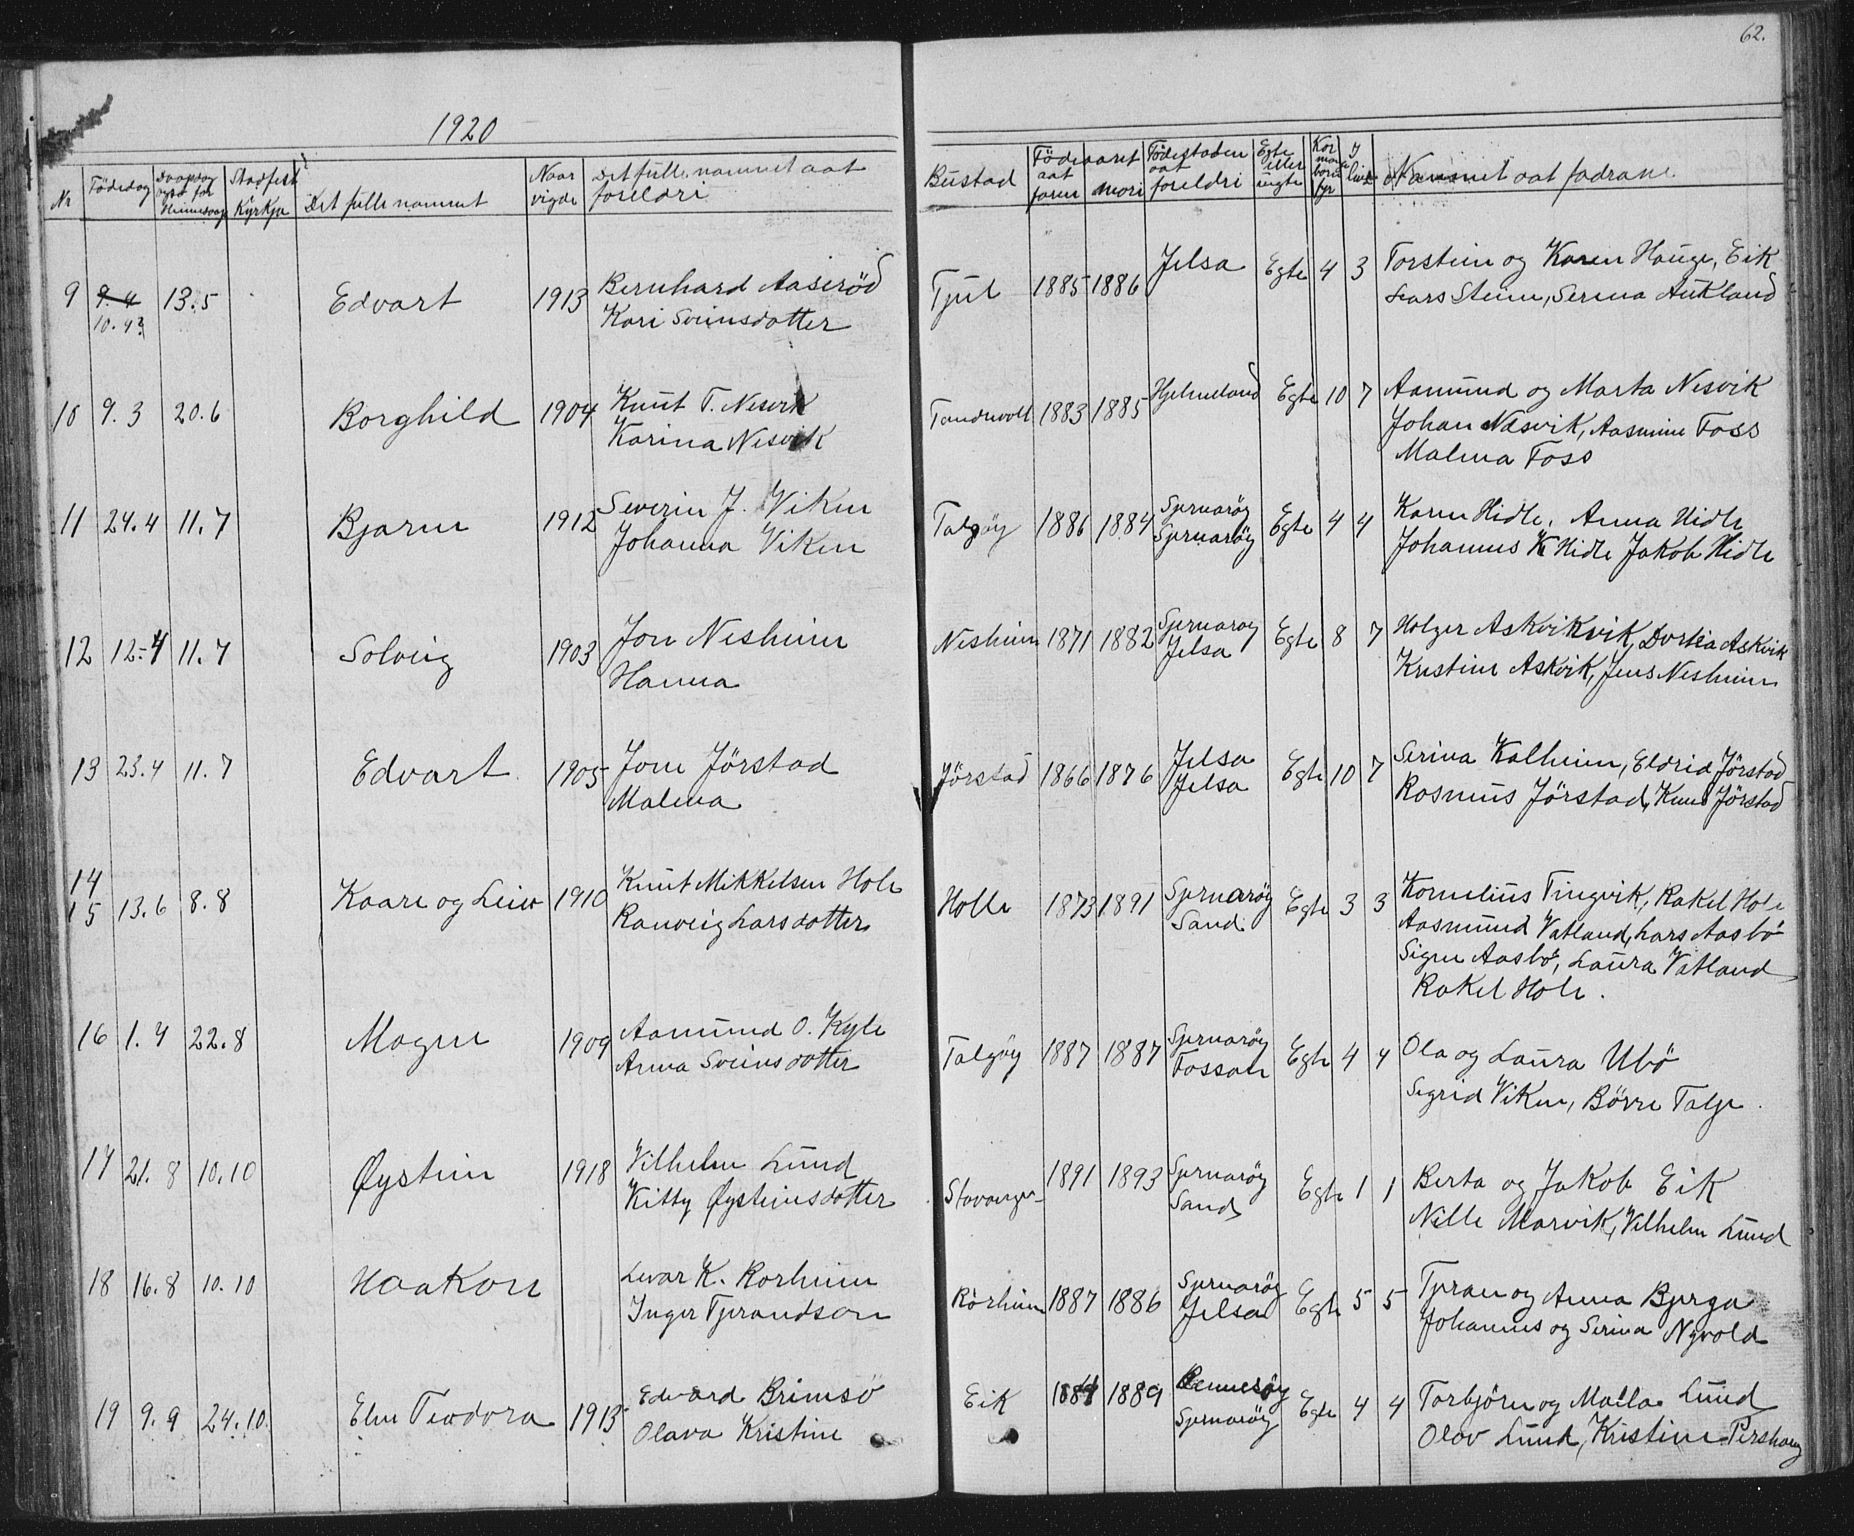 62.
1920
Nr Födedag Daapsdag ogso for Heimedaap Stadfest i Kyrkja Det fulle namnet Naar vigde Det fulle namnet aat foreldri Bustad Födeaaret aat faren mori Födestaden aat foreldri Egte eller uegte Kor mange born fyr I live Namnet aat fadrane
9 9.4 13.5 Edvart 1913 Bernhard Aaseröd Tjul 1885 1886 Jelsa Egte 4 3 Torstein og Karen Hauge, Eik
10.4? Kari Sveinsdotter Lars Steine, Serina Aukland
10 9.3 20.6 Borghild 1904 Knut T. Nesvik 1883 1885 Hjelmeland Egte 10 7 Aamund og Marta Nesvik
Karina Nesvik Johan Nesvik, Aasmine Foss
Malena Foss
11 24.4 11.7 Bjarne 1912 Severin J. Viken Talgöy 1886 1884 Sjernaröy Egte 4 4 Karen Hidle, Anna Hidle
Johanna Viken Sjernaröy Johannes K Hidle Jakob Hidle
12 12.4 11.7 Solveig 1903 Jon Nesheim Nesheim 1871 1882 Sjernaroy Egte 8 7 Holger Askvikvik, Dortea Askvik
Hanna Jelsa Kristine Askvik, Jens Nesheim
13 23.4 11.7 Edvart 1905 Jone Jörstad Jörstad 1866 1876 Jelsa Egte 10 7 Serina Kalheim, Eldrid Jörstad
Malena Jelsa Rasmus Jörstad, Knut Jörstad
14
15 13.6 8.8 Kaare og Leiv 1910 Knut Mikkelsen Hole Holle 1873 1891 Sjernaröy Egte 3 3 Kornelius Tingvik, Rakel Hole
Ranveig Larsdotter Sand. Aasmund Vatland, Lars Aasbö
Signe Aasbö, Laura Vatland
Rakel Hole.
16 1.4 22.8 Magne 1909 Aamund O. Kyle Talgöy 1887 1887 Sjernaröy Egte 4 4 Ola og Laura Ubö
Anna Sveinsdotter Fossan Sigrid Viken, Börre Talje.
17 21.8 10.10 Øystein 1918 Vilhelm Lund Stavanger 1891 1893 Sjernaröy Egte 1 1 Berta og Jakob Eik
Kitty Øysteinsdotter Sand Nille Marvik, Vilhelm Lund
18 16.8 10.10 Haakon Ivar K. Rorheim Rörheim 1887 1886 Sjernaröy Egte 5 5 Tjeran og Anna Bjerga
Inger Tjerandsen Jelsa Johannes og Serina Nyvold
19 9.9 24.10. Else Teodora 1913 Edvard Brimsö Eik 1889 Rennesöy Egte 4 4 Torbjörn og Malla Lund
Olava Kristine Sjernaröy Olav Lund, Kristine Pershaug